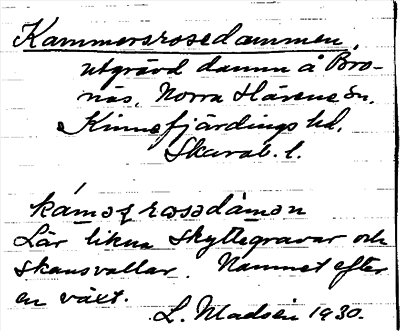 Kammersrosedammen,
utgrävd damm å Bro-
näs, Norra Härene sn,
Kinnefjärdings hd,
Skarab. l.
Lär likna skyttegravar och
skansvallar. Namnet efter
en växt.
L. Madsén 1930.